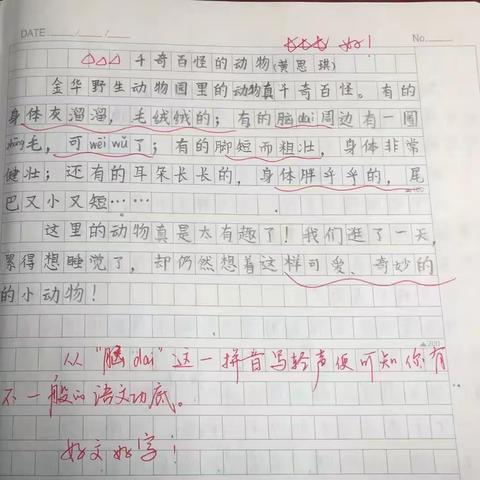 DATE / /
No.
好!
千奇百怪的动物(黄思琪)
金华野生动物园里的动物真千奇百怪。有的
身体灰溜溜,毛绒绒的;有的脑dai周边有一圈
毛,可wēi wǔ了;有的脚短而粗壮,身体非常
健壮;还有的耳朵长长的,身体胖乎乎的,尾
巴又小又短……
这里的动物真是太有趣了!我们逛了一天,
累得想睡觉了,却仍然想着这样可爱、奇妙的
的小动物!
从"脑dai"这一拼音写轻声便可知你有
不一般的语文功底。
好文好字!